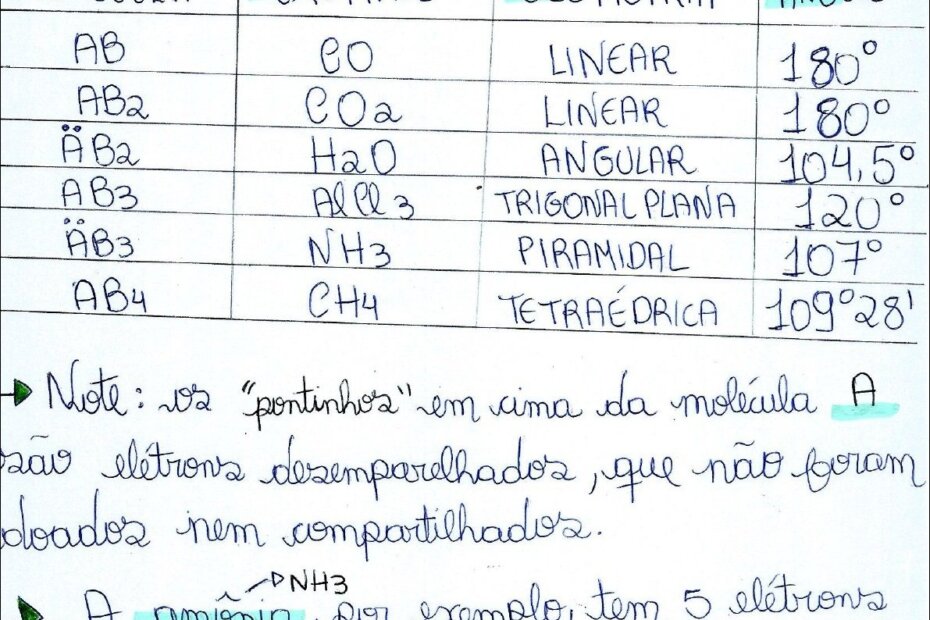 AB CO LINEAR 180°
AB2 CO2 LINEAR 180°
ÄB2 H2O ANGULAR 104,5°
AB3 AlCl3 TRIGONAL PLANA 120°
ÄB3 NH3 PIRAMIDAL 107°
AB4 CH4 TETRAÉDRICA 109°28'
→ Note: os "pontinhos" em cima da molécula A
são elétrons desemparelhados, que não foram
doados nem compartilhados.
NH3
A amônia, por exemplo, tem 5 elétrons